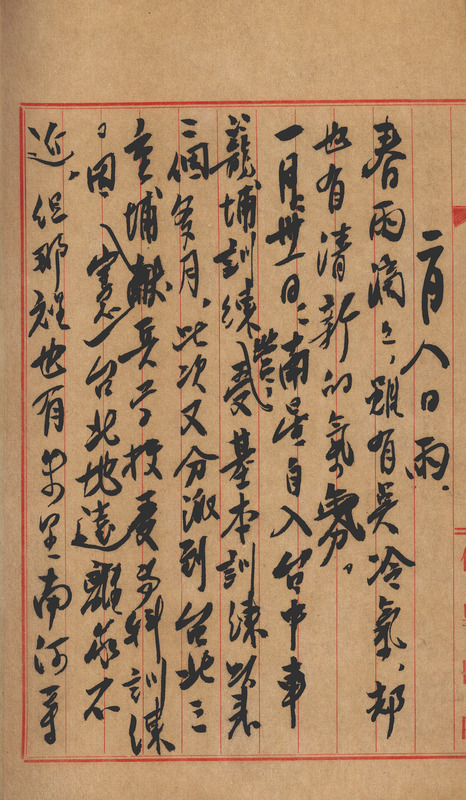 二月八日 雨.
春雨滴々,雖有點冷氣,却
也有清新的氣氛。
一月卅一日:南星自入台中車
籠埔訓練營受基本訓練以來
二個多月,此次又分派到台北三
重埔憲兵学校受專科訓練
。因 台北地遠離家不
近,但那裡也有 南河等